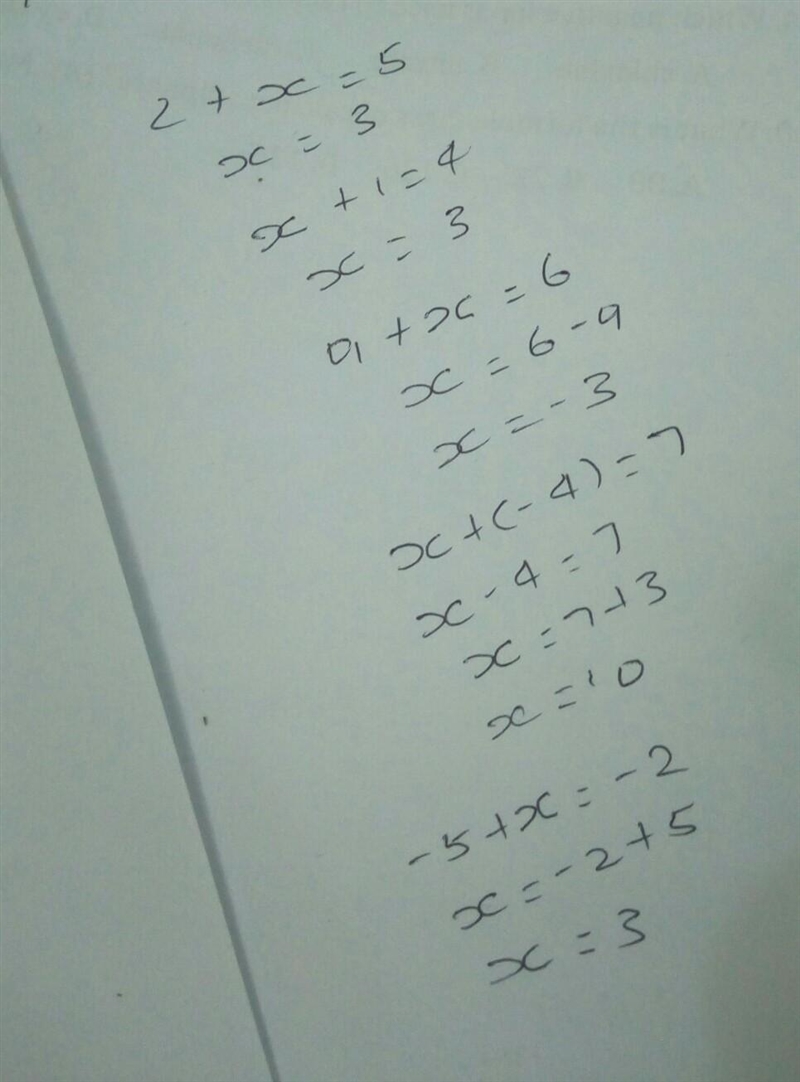 2 + x = 5
x = 3
x + 1 = 4
x = 3
9 + x = 6
x = 6 - 9
x = - 3
x + (- 4) = 7
x - 4 = 7
x = 7 + 3
x = 10
- 5 + x = - 2
x = - 2 + 5
x = 3